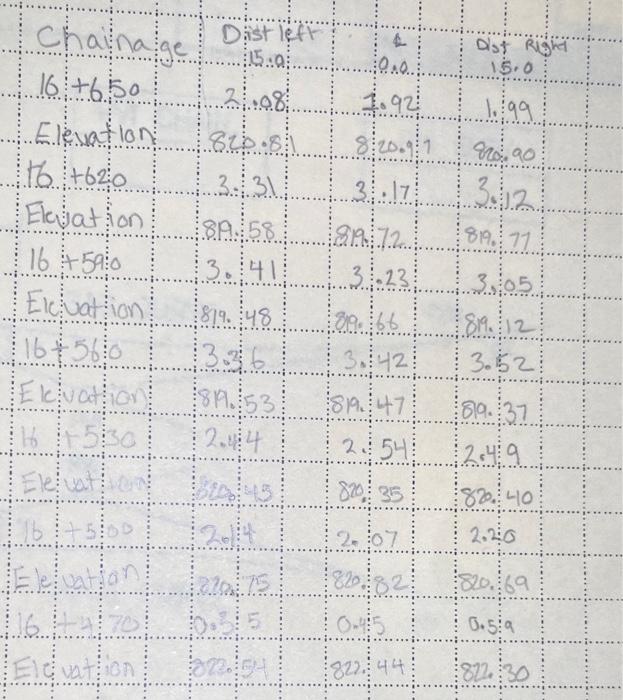 Chainage Dist left ℄ Dist Right
15.0 0.0 15.0
16 +650 2.08 1.92 1.99
Elevation 820.81 820.97 820.90
16 +620 3.31 3.17 3.12
Elevation 819.58 819.72 819.77
16 +590 3.41 3.23 3.05
Elevation 819.48 819.66 819.12
16 +560 3.36 3.42 3.52
Elevation 819.53 819.47 819.37
16 +530 2.44 2.54 2.49
Elevation 820.45 820.35 820.40
16 +500 2.14 2.07 2.20
Elevation 820.75 820.82 820.69
16 +470 0.35 0.45 0.59
Elevation 822.54 822.44 822.30